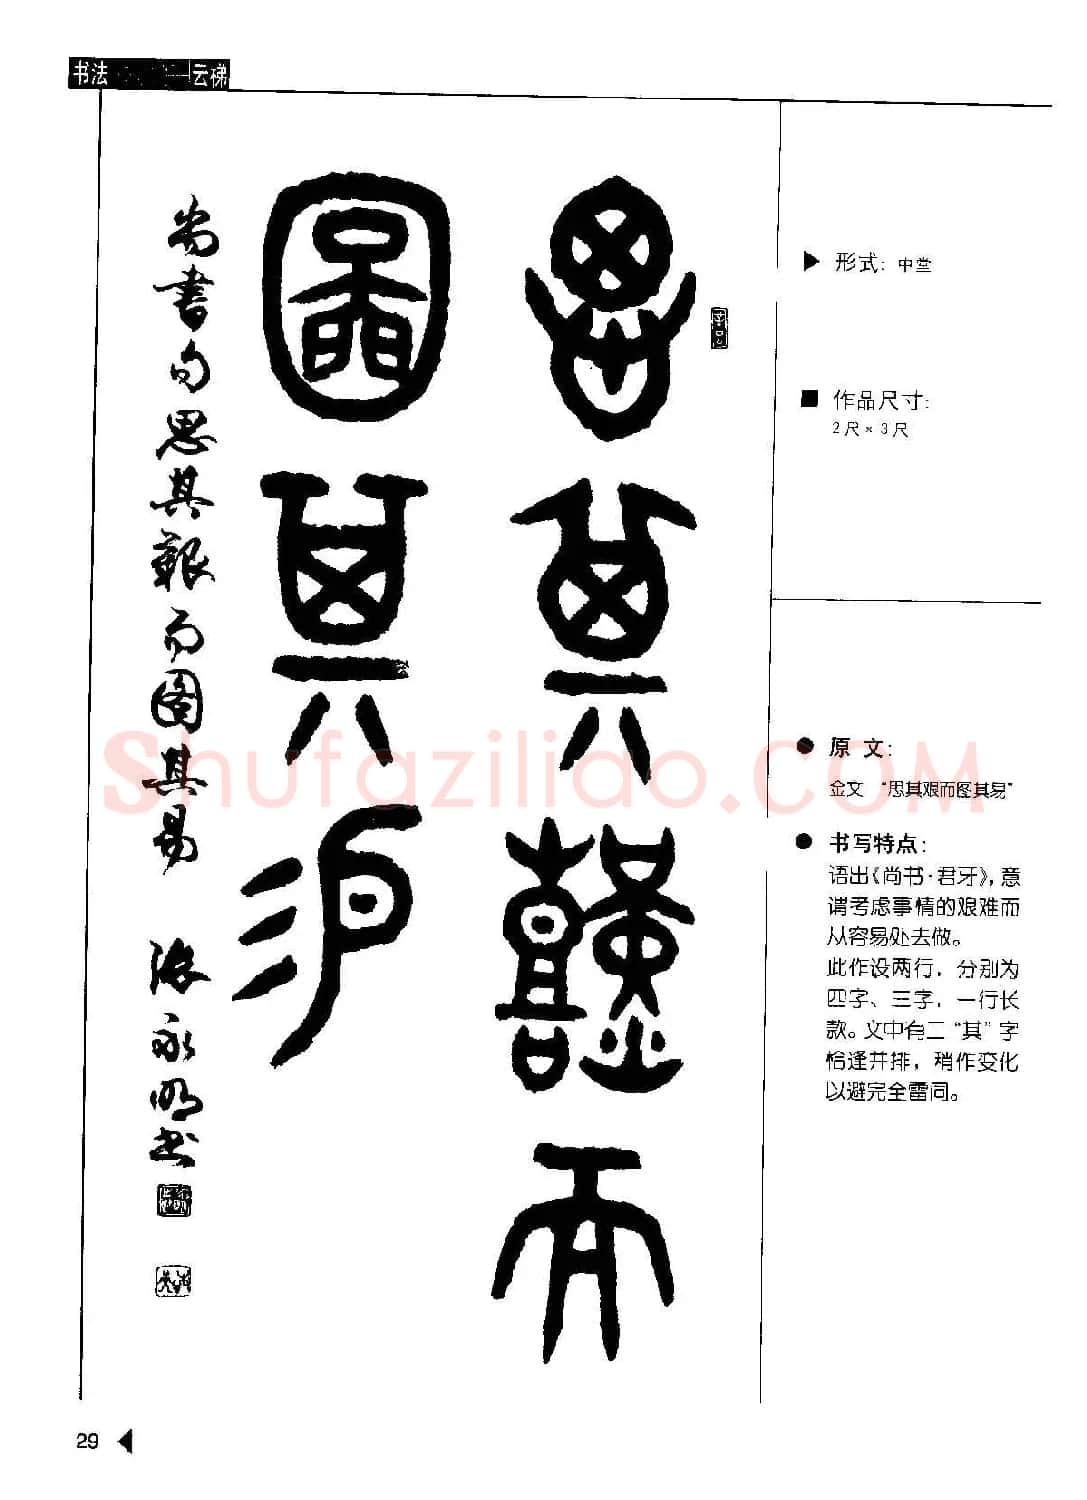 书法
云梯
思其艱而
圖其易
尚書句思其艱而图其易 張永明书
形式：中堂
作品尺寸：
2尺×3尺
原文：
金文 “思其艰而图其易”
书写特点：
语出《尚书·君牙》，意
谓考虑事情的艰难而
从容易处去做。
此作设两行，分别为
四字、三字，一行长
款。文中有二“其”字
恰逢并排，稍作变化
以避完全雷同。
Shufaziliao.COM
29